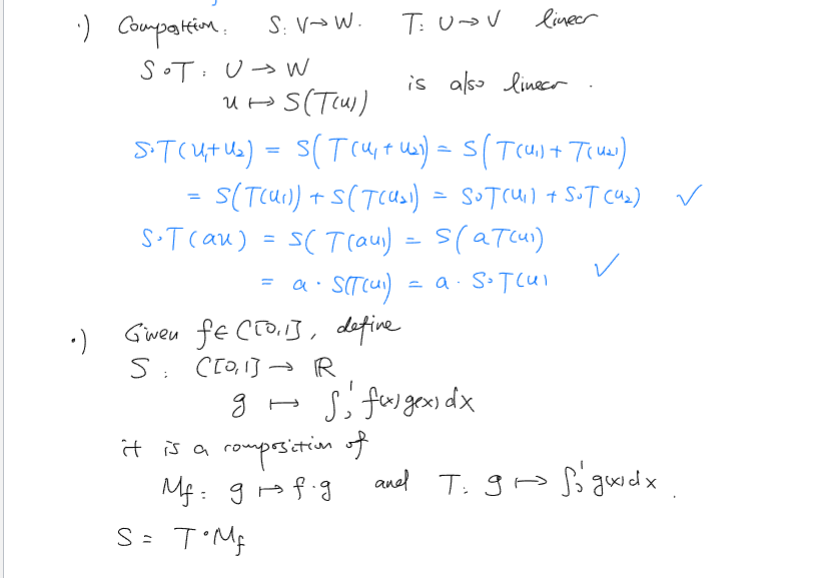 ·) Composition: S: V→W. T: U→V linear
S∘T: U→W
u ↦ S(T(u)) is also linear.
S∘T(u₁+u₂) = S(T(u₁+u₂)) = S(T(u₁)+T(u₂))
= S(T(u₁)) + S(T(u₂)) = S∘T(u₁) + S∘T(u₂) ✓
S∘T(au) = S(T(au)) = S(aT(u))
= a · S(T(u)) = a · S∘T(u) ✓
·) Given f∈C[0,1], define
S: C[0,1] → ℝ
g ↦ ∫₀¹ f(x)g(x)dx
it is a composition of
M_f: g ↦ f·g and T: g ↦ ∫₀¹ g(x)dx.
S = T∘M_f